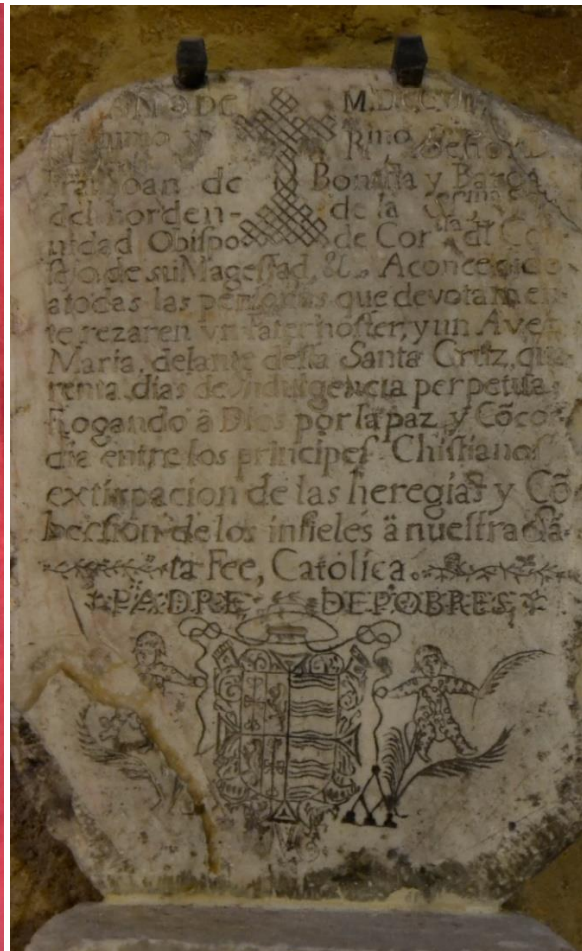 M.DCCVII
Rmo Señor
Fray Joan de Bonilla y Barga
del horden de la
nidad Obispo de Cor
sejo de su Magestad, &c. A concedido
a todas las personas que devotamen
te rezaren vn Paternoster, y un Ave
Maria, delante desta Santa Cruz, qua
renta dias de indulgencia perpetua
Rogando â Dios por la paz, y Cōco
dia entre los principes Christianos
extirpacion de las heregias y Cō
bersion de los infieles ä nuestra Sā
ta Fee, Catolica.
PADRE DE POBRES